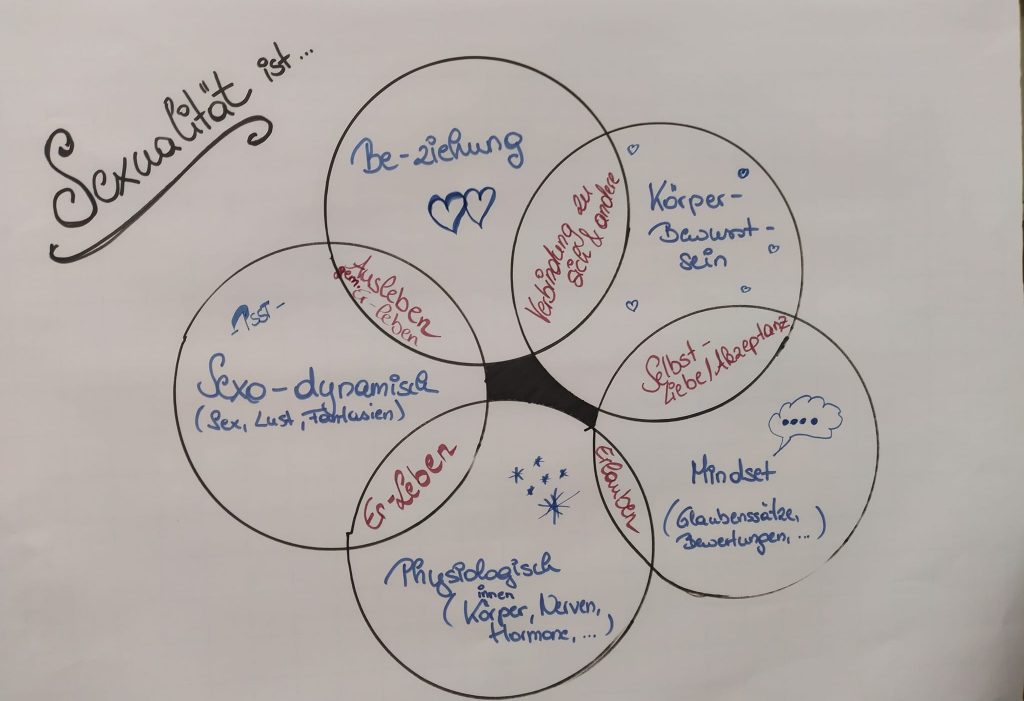 Sexualität ist...
Be-ziehung
Körper-
Bewusst-
sein
Verbindung zu
sich & andere
Ausleben
gem. Er-leben
-Psst-
Sexo-dynamisch
(Sex, Lust, Fantasien)
Selbst-
Liebe/Akzeptanz
....
Mindset
(Glaubenssätze,
Bewertungen, ...)
Er-Leben
Erlauben
Physiologisch
innen
(Körper, Nerven,
Hormone, ...)